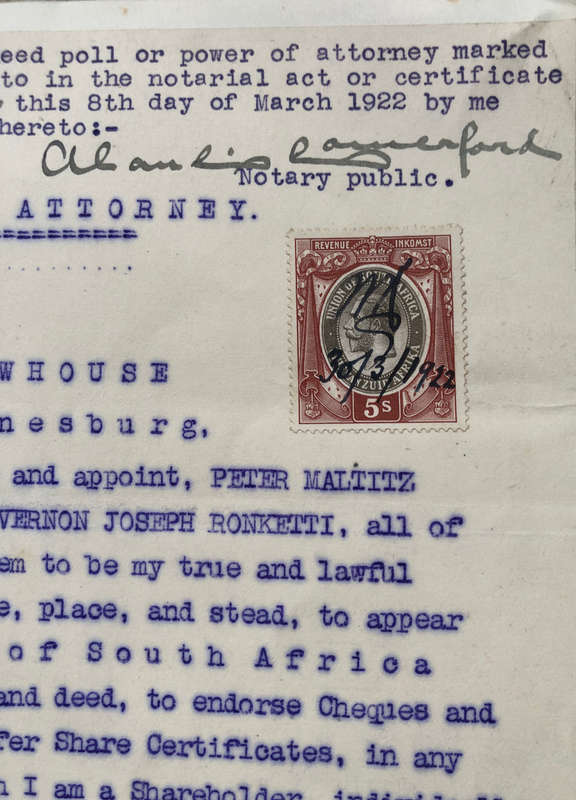 eed poll or power of attorney marked
to in the notarial act or certificate
this 8th day of March 1922 by me
hereto:-
Notary public.
ATTORNEY.
REVENUE INKOMST
UNION OF SOUTH AFRICA
ZUID AFRIKA
5s
WHOUSE
nesburg,
and appoint, PETER MALTITZ
VERNON JOSEPH RONKETTI, all of
em to be my true and lawful
e, place, and stead, to appear
of South Africa
and deed, to endorse Cheques and
fer Share Certificates, in any
h I am a Shareholder, individually